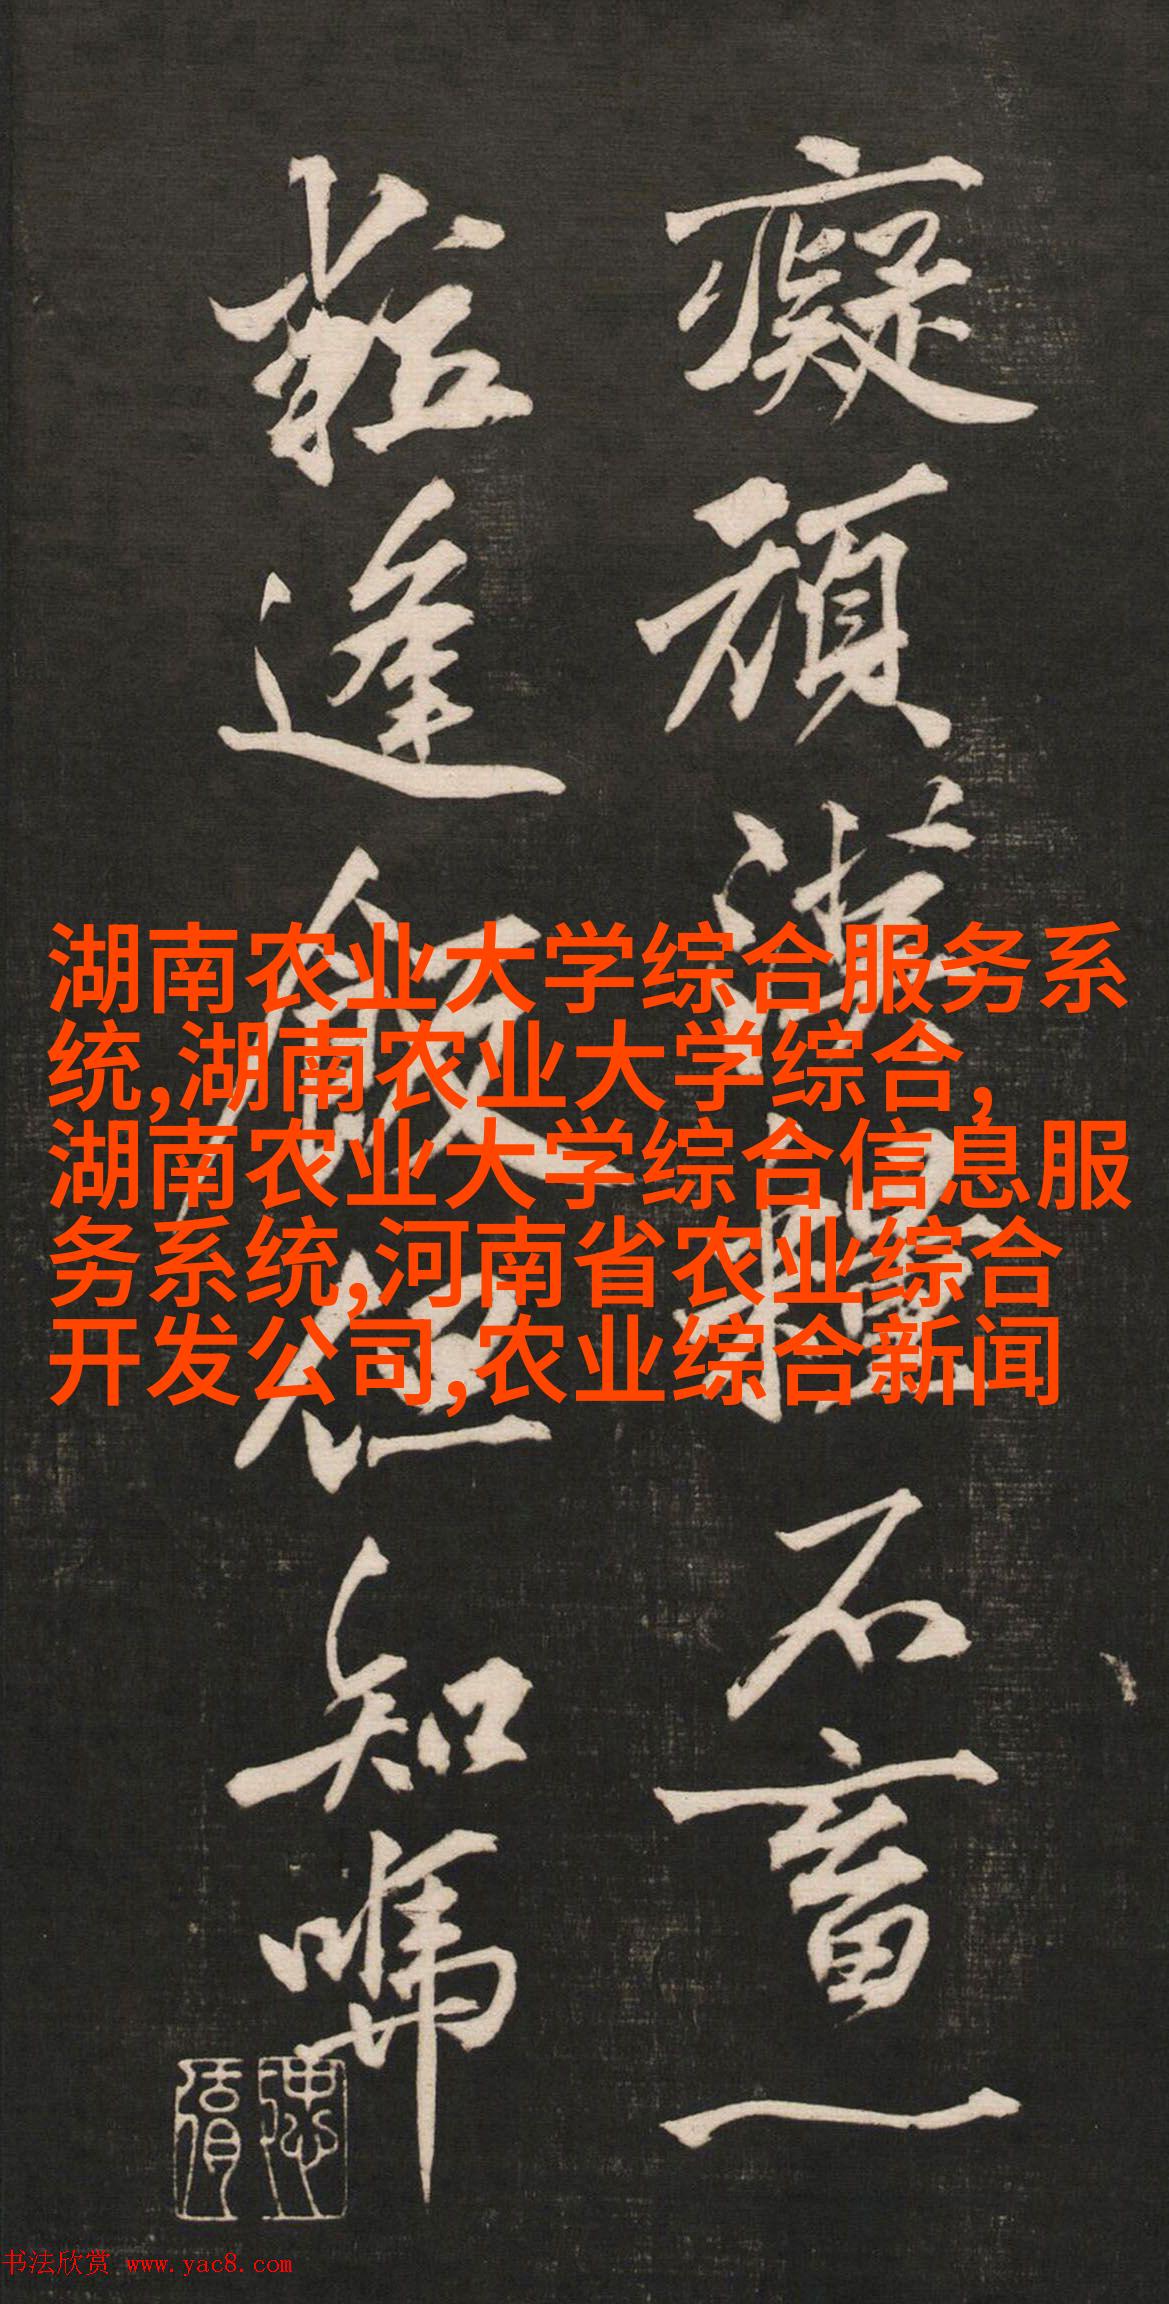 癡頑畜一
逢飯但知
湖南农业大学综合服务系
统,湖南农业大学综合,
湖南农业大学综合信息服
务系统,河南省农业综合
开发公司,农业综合新闻
书法欣赏 www.yac8.com